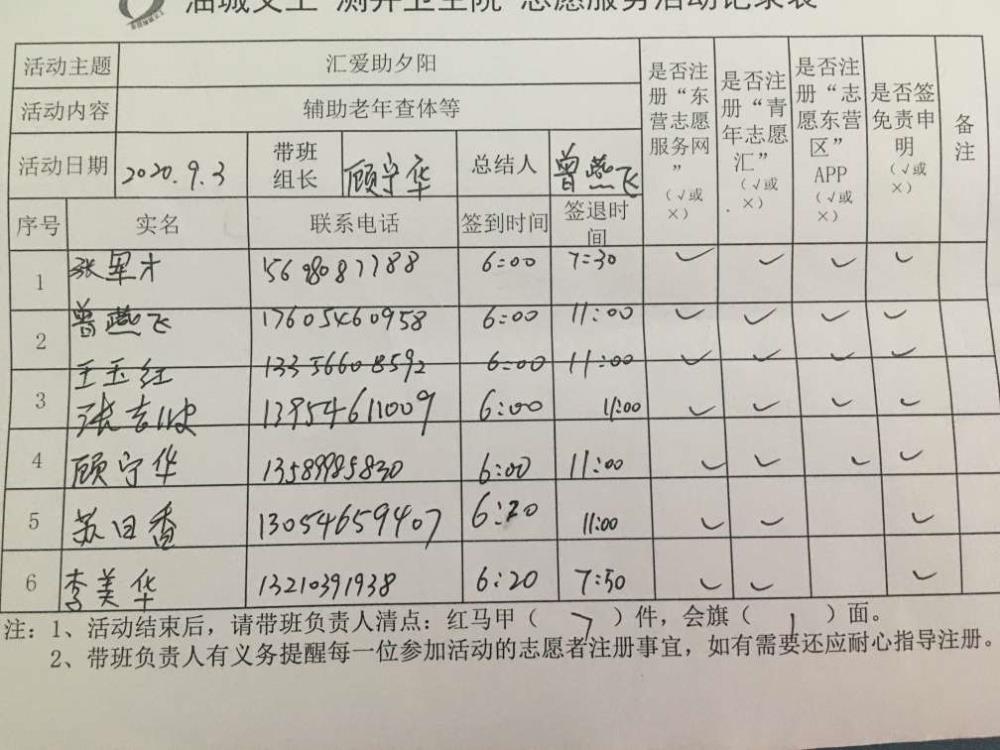 油城义工“测井卫生院”志愿服务活动记录表
活动主题 汇爱助夕阳 是否注册“东营志愿服务网”（√或×） 是否注册“青年志愿汇”（√或×） 是否注册“志愿东营区”APP（√或×） 是否签免责申明（√或×） 备注
活动内容 辅助老年查体等
活动日期 2020.9.3 带班组长 顾宁华 总结人 曾燕飞
序号 实名 联系电话 签到时间 签退时间
1 张军才 15698087788 6:00 7:30 ✓ ✓ ✓ ✓
2 曾燕飞 17605460958 6:00 11:00 ✓ ✓ ✓ ✓
王玉红 13356608592 6:00 11:00 ✓ ✓ ✓ ✓
3 张吉波 13954611009 6:00 11:00 ✓ ✓ ✓ ✓
4 顾宁华 13589985830 6:00 11:00 ✓ ✓ ✓ ✓
5 苏日香 13054659407 6:20 11:00 ✓ ✓ ✓
6 李美华 13210391938 6:20 7:50 ✓ ✓ ✓
注：1、活动结束后，请带班负责人清点：红马甲（ 7 ）件，会旗（ 1 ）面。
2、带班负责人有义务提醒每一位参加活动的志愿者注册事宜，如有需要还应耐心指导注册。